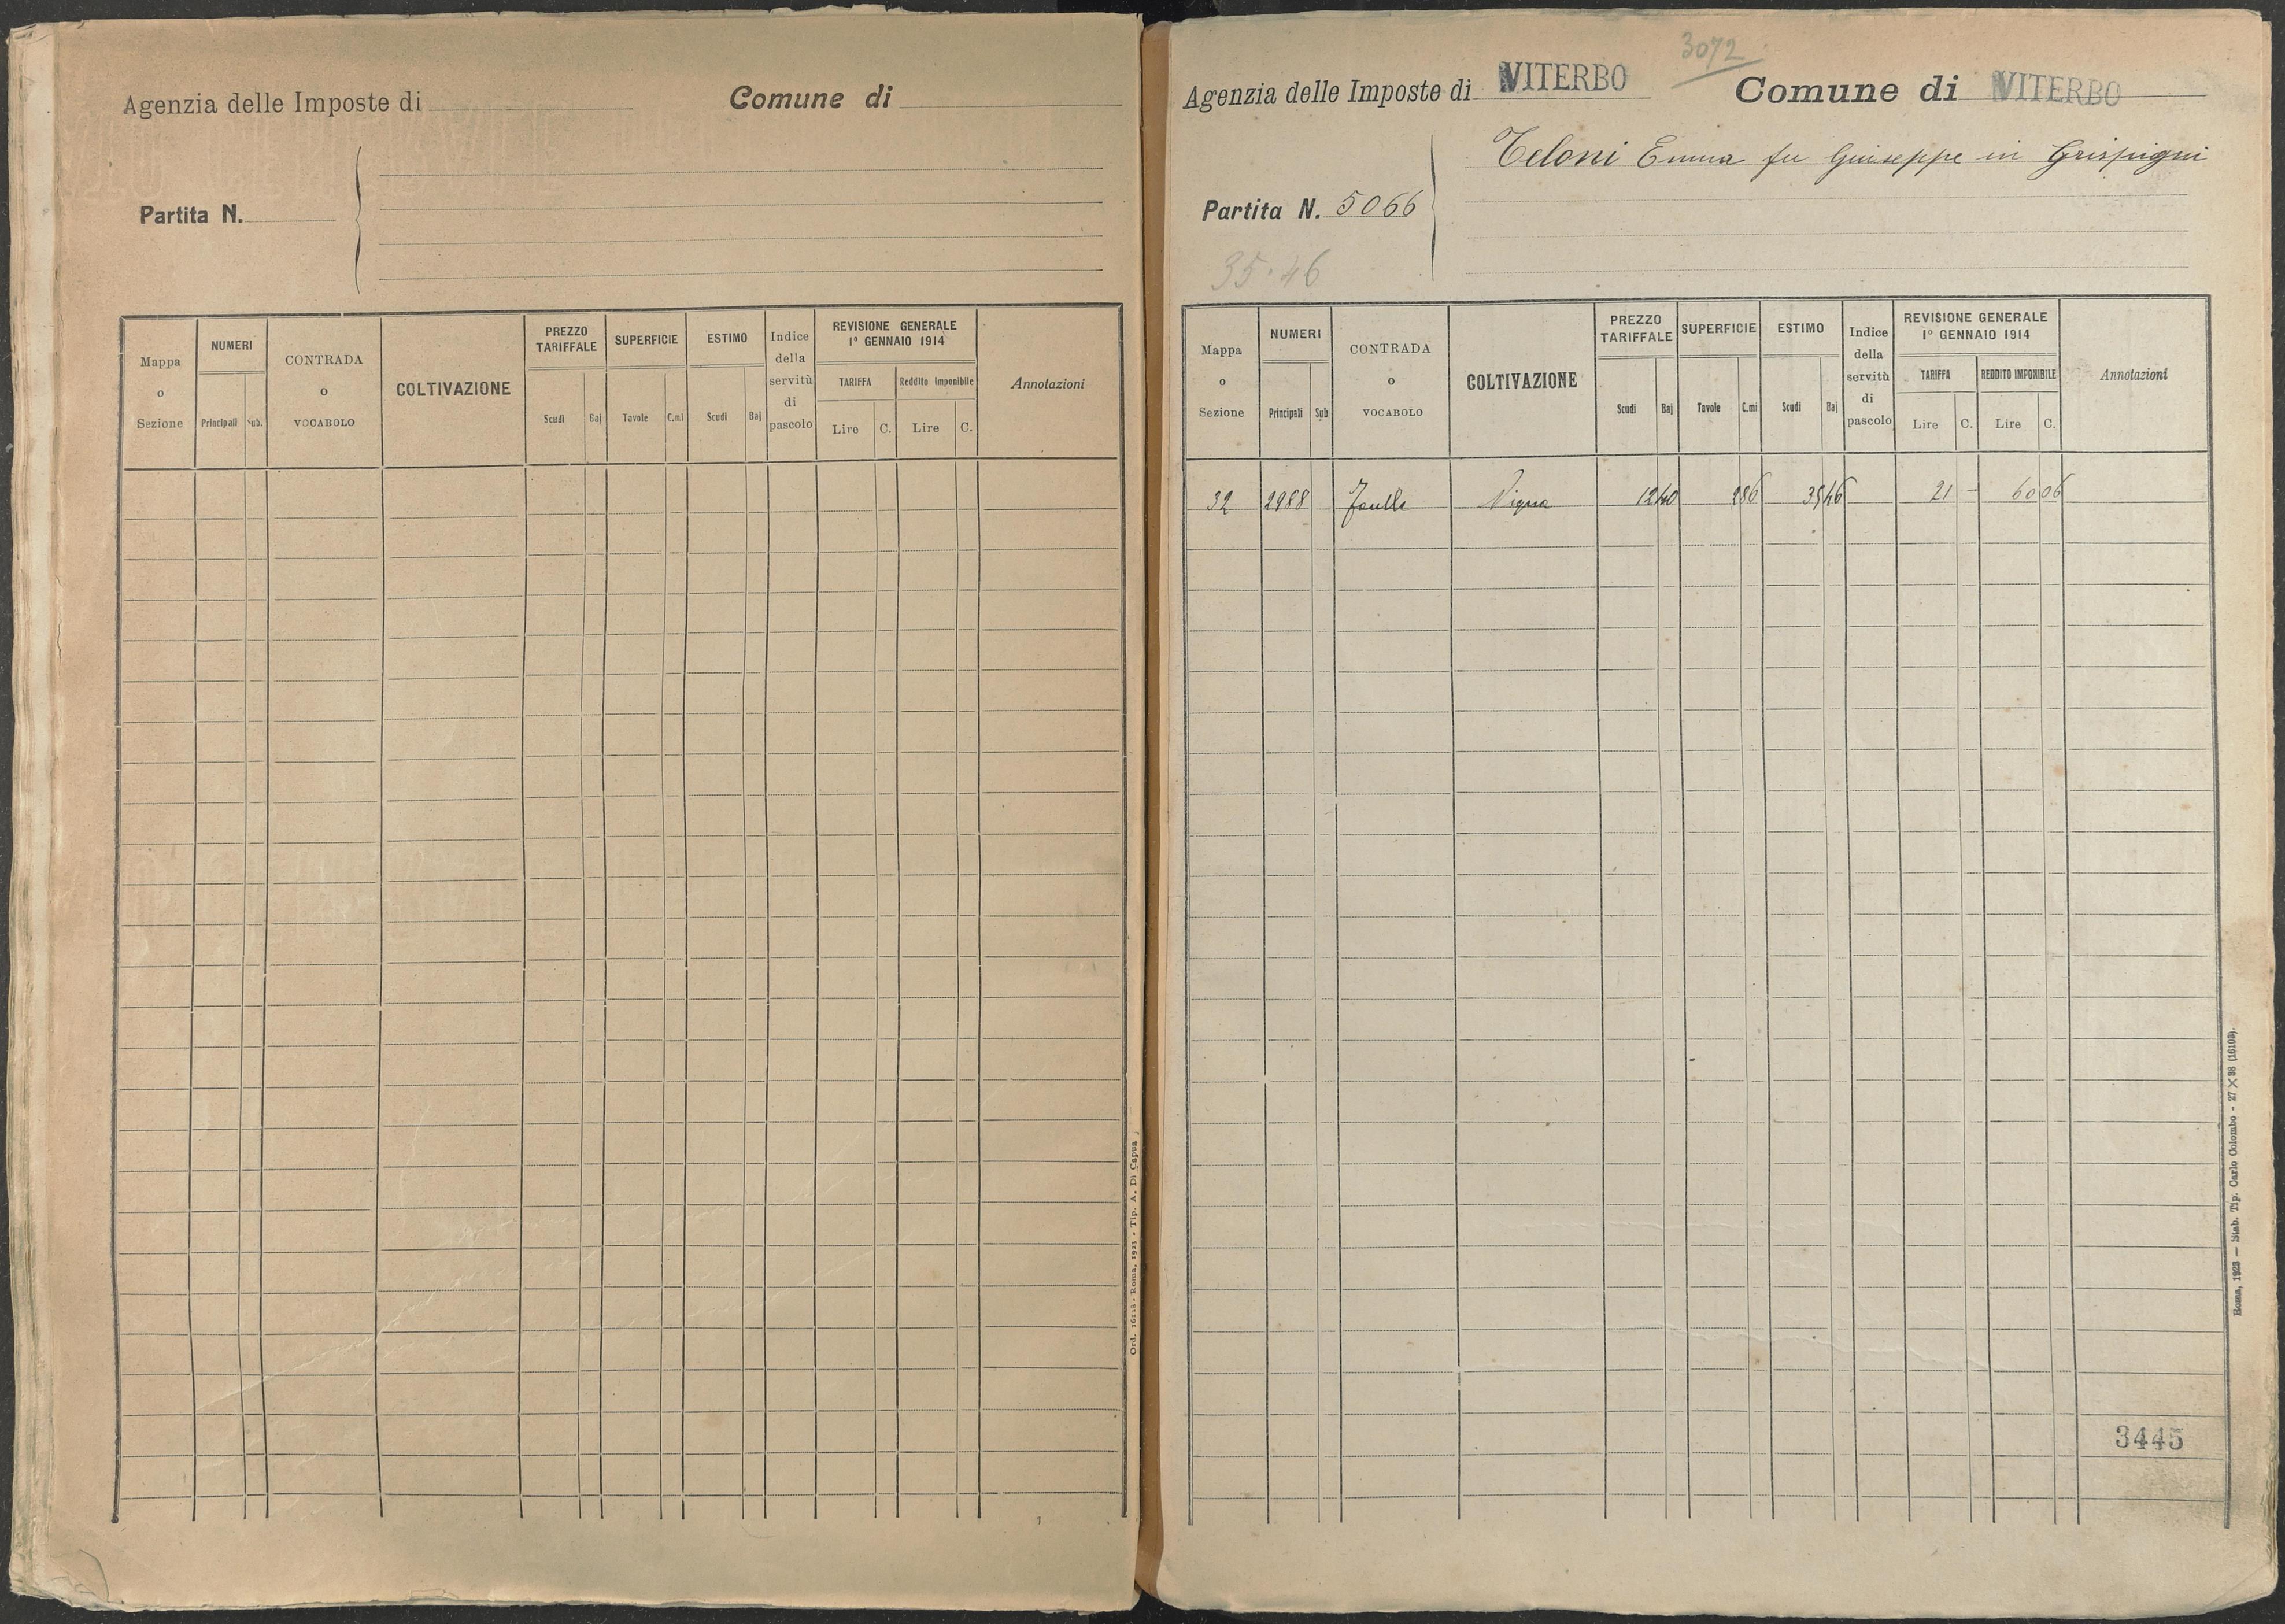 Agenzia delle Imposte di
Comune di
Partita N.
Mappa o Sezione
NUMERI
Principali Sub.
CONTRADA o VOCABOLO
COLTIVAZIONE
PREZZO TARIFFALE
Scudi Baj
SUPERFICIE
Tavole C.mi
ESTIMO
Scudi Baj
Indice della servitù di pascolo
REVISIONE GENERALE
1º GENNAIO 1914
TARIFFA
Lire C.
Reddito Imponibile
Lire C.
Annotazioni
Ord. 16118 - Roma, 1923 - Tip. A. Di Capua
3072
Agenzia delle Imposte di VITERBO
Comune di VITERBO
Teloni Emma fu Giuseppe in Grispigni
Partita N. 5066
35.46
Mappa o Sezione
NUMERI
Principali Sub
CONTRADA o VOCABOLO
COLTIVAZIONE
PREZZO TARIFFALE
Scudi Baj
SUPERFICIE
Tavole C.mi
ESTIMO
Scudi Baj
Indice della servitù di pascolo
REVISIONE GENERALE
1º GENNAIO 1914
TARIFFA
Lire C.
REDDITO IMPONIBILE
Lire C.
Annotazioni
32 2988 Vigna 12 40 2 86 35 46 21 - 60 06
3445
Roma, 1923 — Stab. Tip. Carlo Colombo - 27 X 38 (16103).